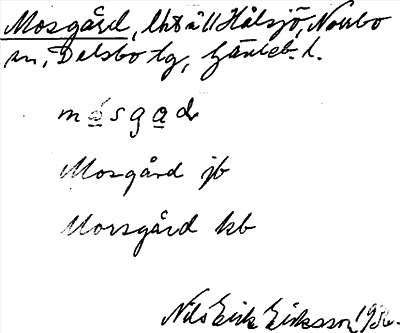 Mosgård, lht ä ll Hålsjö, Norrbo
sn, Delsbo tg, Gävleb. l.
mósgad
Mosgård jb
Morsgård kb
Nils Erik Eriksson 1936.